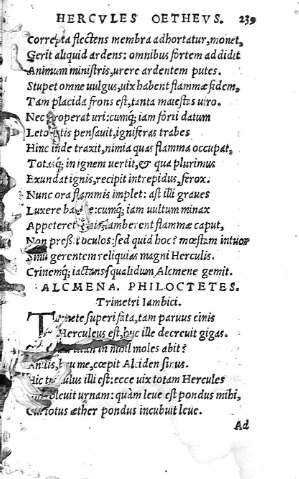 HERCVLES OETHEVS. 239
Correpta flectens membra adhortatur, monet,
Gerit aliquid ardens: omnibus fortem addidit
Animum ministris, urere ardentem putes.
Stupet omne uulgus, uix habent flammæ fidem,
Tam placida frons est, tanta maiestas uiro.
Nec properat uri: cumq; iam forti datum
Leto satis pensauit, igniferas trabes
Hinc inde traxit, nimia quas flamma occupat,
Totasq; in ignem uertit, & qua plurimus
Exundat ignis, recipit intrepidus, ferox.
Nunc ora flammis implet: ast illi graues
Luxere barbæ: cumq; iam uultum minax
Appeteret lamberent flammæ caput,
Non pressit oculos: sed quid hoc? mœstam intuor
Sinu gerentem reliquias magni Herculis.
Crinemq; iactans squalidum Alcmene gemit.
ALCMENA. PHILOCTETES.
Trimetri Iambici.
Timete superi fata, tam paruus cinis
Herculeus est, huc ille decreuit gigas.
in nihil moles abit?
sinus.
Hic illi est: ecce uix totam Hercules
urnam: quàm leue est pondus mihi,
Cui totus æther pondus incubuit leue.
Ad